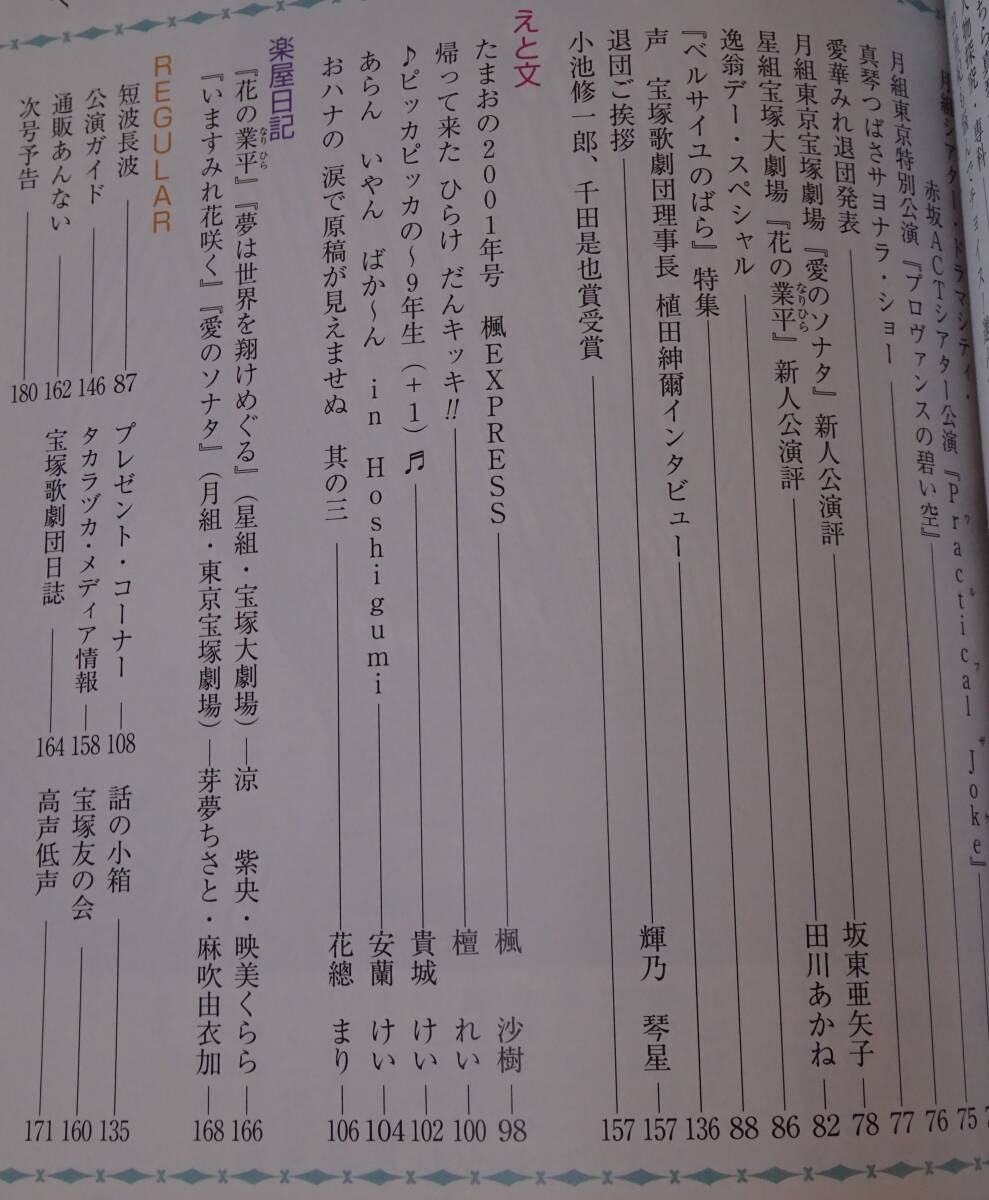 月組シアター・ドラマシティ・
赤坂ACTシアター公演『Practical Joke』 75
月組東京特別公演『プロヴァンスの碧い空』 76
真琴つばささサヨナラ・ショー 77
愛華みれ退団発表 坂東亜矢子 78
月組東京宝塚劇場『愛のソナタ』新人公演評 田川あかね 82
星組宝塚大劇場『花の業平』新人公演評 86
なりひら
逸翁デー・スペシャル 88
『ベルサイユのばら』特集 136
声 宝塚歌劇団理事長 植田紳爾インタビュー 輝乃 琴星 157
退団ご挨拶 157
小池修一郎、千田是也賞受賞
えと文
たまおの2001年号 楓EXPRESS 楓 沙樹 98
帰って来た ひらけ だんキッキ!! 檀 れい 100
♪ピッカピッカの〜9年生(+1)♬ 貴城 けい 102
あらん いやん ばか〜ん in Hoshigumi 安蘭 けい 104
おハナの 涙で原稿が見えませぬ 其の三 花總 まり 106
楽屋日記
『花の業平』『夢は世界を翔けめぐる』(星組・宝塚大劇場) 涼 紫央・映美くらら 166
なりひら
『いますみれ花咲く』『愛のソナタ』(月組・東京宝塚劇場) 芽夢ちさと・麻吹由衣加 168
REGULAR
短波長波 87
公演ガイド 146
通販あんない 162
次号予告 180
プレゼント・コーナー 108
タカラヅカ・メディア情報 158
宝塚歌劇団日誌 164
話の小箱 135
宝塚友の会 160
高声低声 171